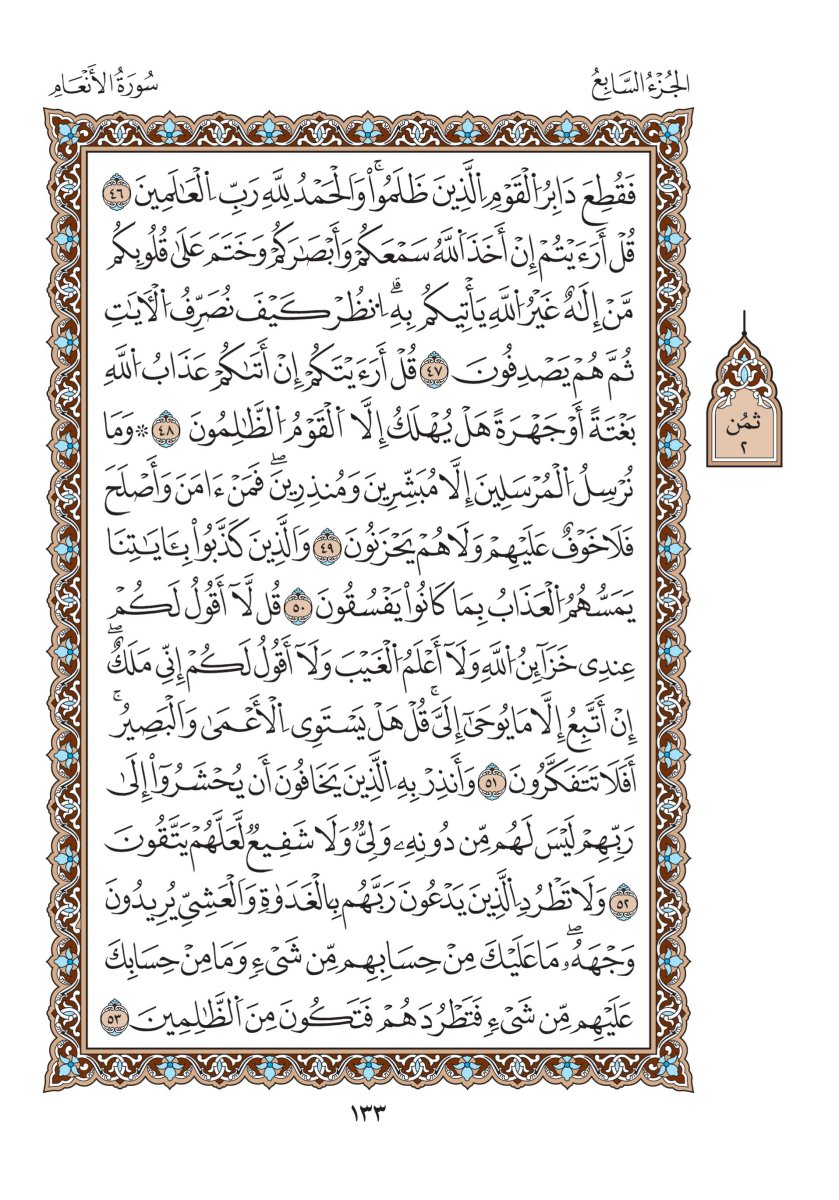 الجُزْءُ السَّابِعُ
سُورَةُ الأَنْعَامِ
فَقُطِعَ دَابِرُ اُ۬لْقَوْمِ اِ۬لَّذِينَ ظَلَمُواْۚ وَالْحَمْدُ لِلهِ رَبِّ اِ۬لْعَٰلَمِينَ ٤٦
قُلْ أَرَءَيْتُمْ إِنْ أَخَذَ اَ۬للَّهُ سَمْعَكُمْ وَأَبْصَٰرَكُمْ وَخَتَمَ عَلَىٰ قُلُوبِكُم
مَّنْ إِلَٰهٌ غَيْرُ اُ۬للَّهِ يَأْتِيكُم بِهِۗ اِ۟نظُرْ كَيْفَ نُصَرِّفُ اُ۬لْأٓيَٰتِ
ثُمَّ هُمْ يَصْدِفُونَ ٤٧ قُلْ أَرَءَيْتَكُمْ إِنْ أَتَىٰكُمْ عَذَابُ اُ۬للَّهِ
بَغْتَةً أَوْ جَهْرَةً هَلْ يُهْلَكُ إِلَّا اَ۬لْقَوْمُ اُ۬لظَّٰلِمُونَ ٤٨ ۞ وَمَا
نُرْسِلُ اُ۬لْمُرْسَلِينَ إِلَّا مُبَشِّرِينَ وَمُنذِرِينَۖ فَمَنْ ءَامَنَ وَأَصْلَحَ
فَلَا خَوْفٌ عَلَيْهِمْ وَلَا هُمْ يَحْزَنُونَ ٤٩ وَالَّذِينَ كَذَّبُواْ بِـَٔايَٰتِنَا
يَمَسُّهُمُ اُ۬لْعَذَابُ بِمَا كَانُواْ يَفْسُقُونَ ٥٠ قُل لَّآ أَقُولُ لَكُمْ
عِندِى خَزَآئِنُ اُ۬للَّهِ وَلَآ أَعْلَمُ اُ۬لْغَيْبَ وَلَآ أَقُولُ لَكُمْ إِنِّى مَلَكٌۖ
إِنْ أَتَّبِعُ إِلَّا مَا يُوحَىٰٓ إِلَىَّۚ قُلْ هَلْ يَسْتَوِى اِ۬لْأَعْمَىٰ وَالْبَصِيرُۚ
أَفَلَا تَتَفَكَّرُونَ ٥١ وَأَنذِرْ بِهِ اِ۬لَّذِينَ يَخَافُونَ أَن يُحْشَرُوٓاْ إِلَىٰ
رَبِّهِمْ لَيْسَ لَهُم مِّن دُونِهِۦ وَلِىٌّ وَلَا شَفِيعٌ لَّعَلَّهُمْ يَتَّقُونَ
٥٢ وَلَا تَطْرُدِ اِ۬لَّذِينَ يَدْعُونَ رَبَّهُم بِالْغَدَوٰةِ وَالْعَشِىِّ يُرِيدُونَ
وَجْهَهُۥۖ مَا عَلَيْكَ مِنْ حِسَابِهِم مِّن شَىْءٍ وَمَا مِنْ حِسَابِكَ
عَلَيْهِم مِّن شَىْءٍ فَتَطْرُدَهُمْ فَتَكُونَ مِنَ اَ۬لظَّٰلِمِينَ ٥٣
ثُمُن
٢
١٣٣